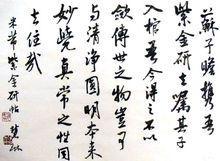 蘇子瞻攜吾
紫金研去囑其子
入棺吾今得之不以
斂傳世之物豈可
与清淨圓明本来
妙覺真常之性同
去住哉
米芾紫金研帖